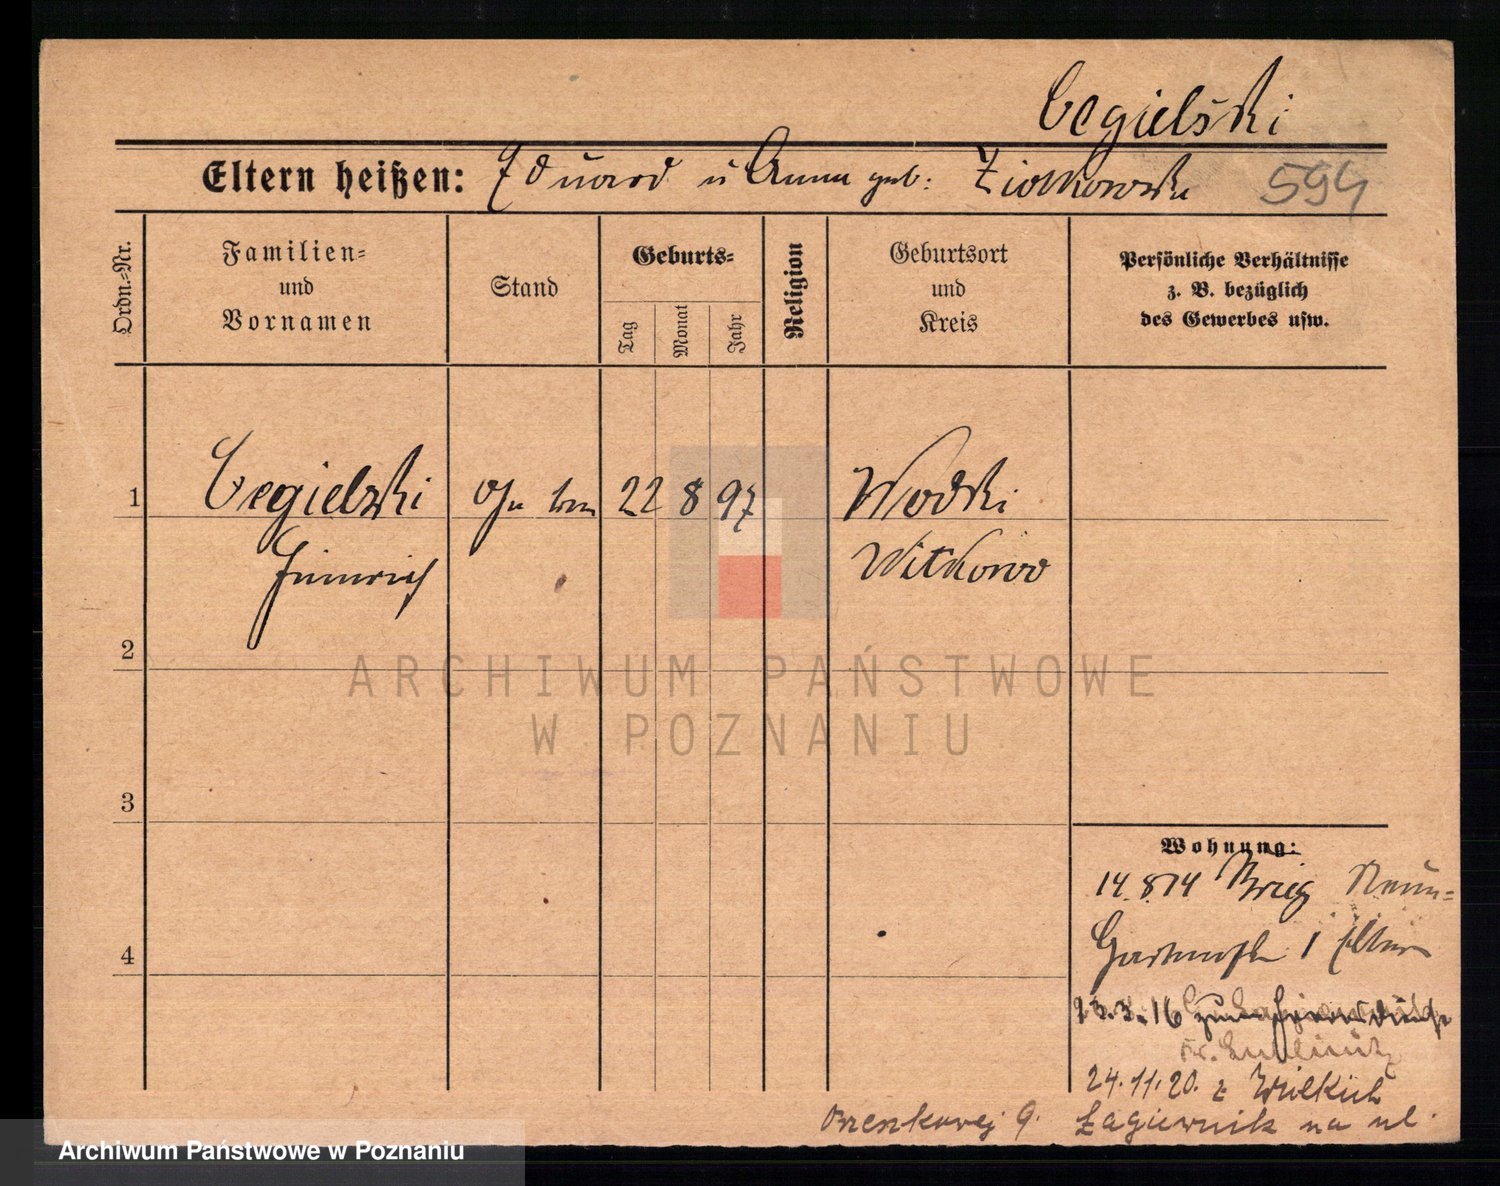 Cegielski
Eltern heißen: Eduard u Anna geb: Ziolkowska 594
Ordn.-Nr.
Familien-
und
Vornamen
Stand
Geburts-
Tag
Monat
Jahr
Religion
Geburtsort
und
Kreis
Persönliche Verhältnisse
z. B. bezüglich
des Gewerbes usw.
1 Cegielski 22 8 97 Wodki
Heinrich Witkowo
2
ARCHIWUM PAŃSTWOWE
W POZNANIU
3
Wohnung:
14.8.14 Brieg Neue-
4
Gartenstr 1 Eltern
23.3.16 zum Heeresdienst
Kr. Lublinitz
24.11.20. z Wielkich
Łagiewnik na ul.
Orzeszkowej 9.
Archiwum Państwowe w Poznaniu